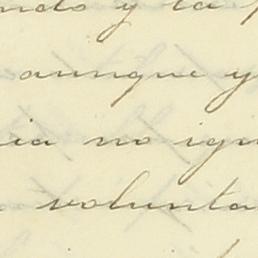 ndo y la
aunque y
ia no igu
volunta